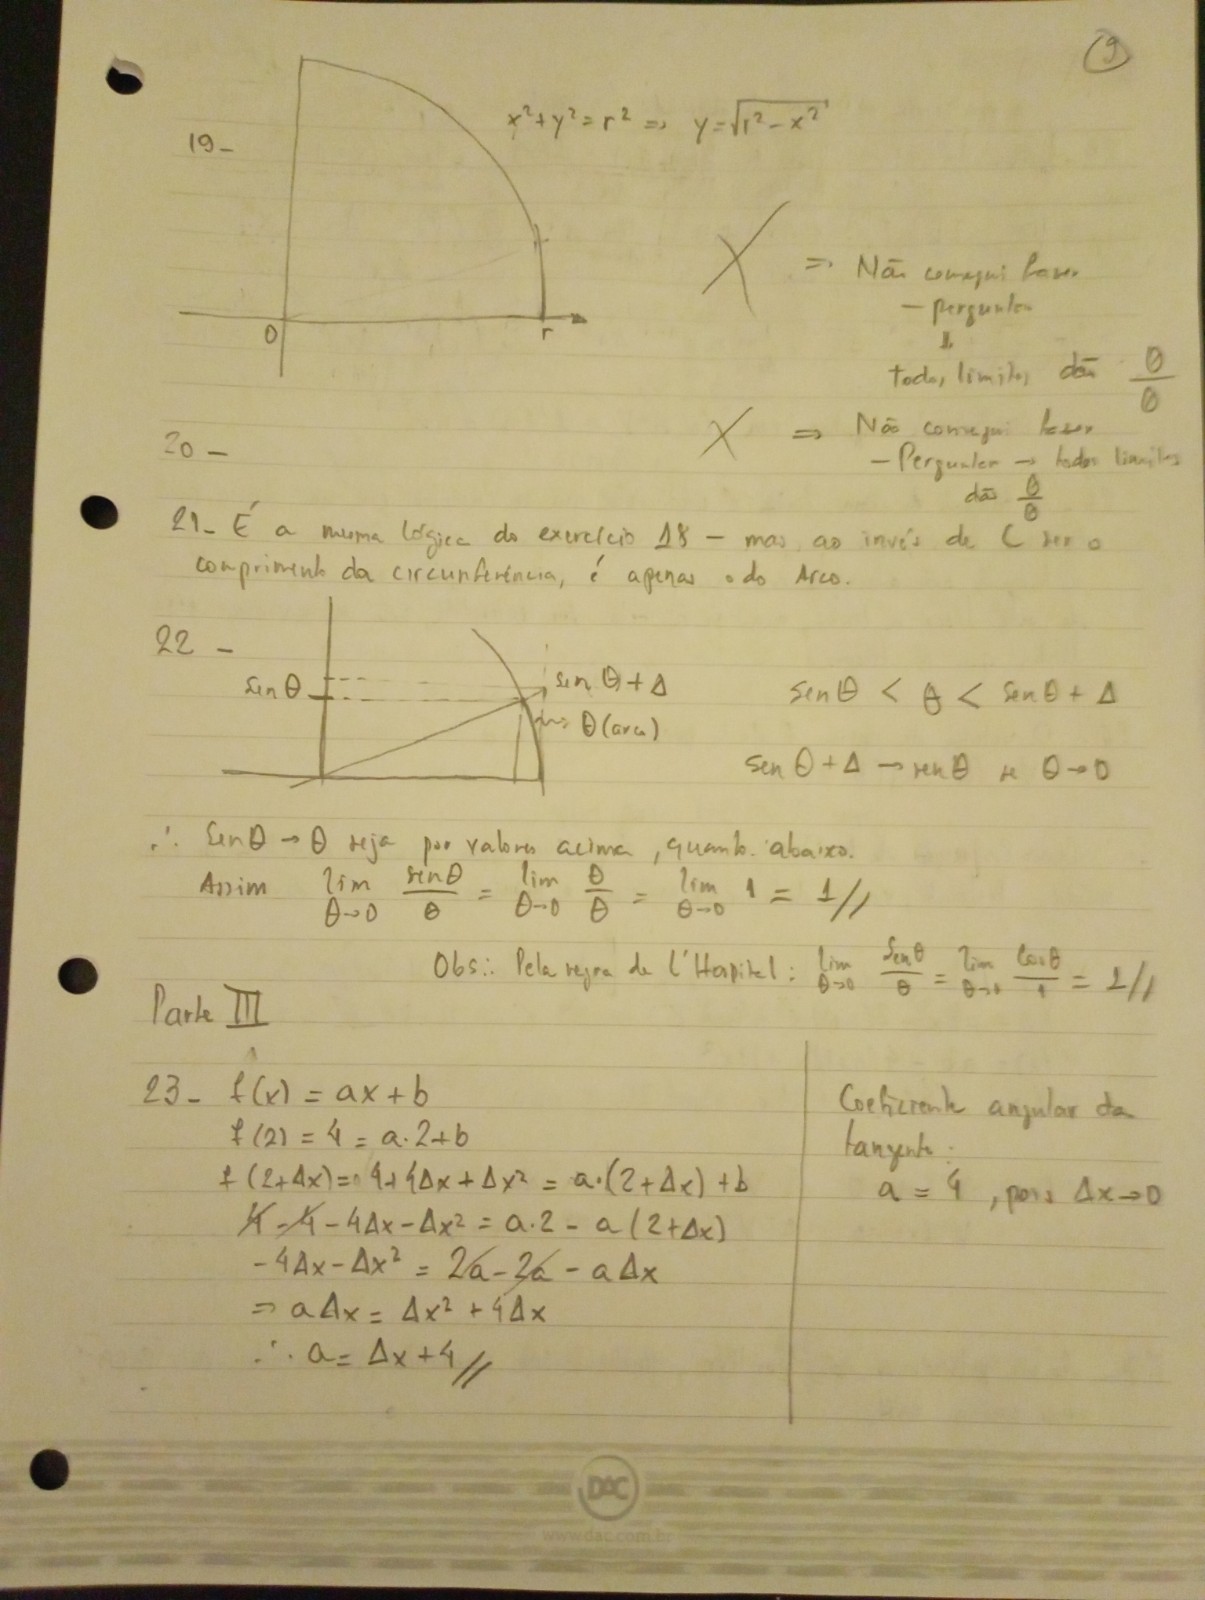 9
19- x²+y²=r² ⇒ y=√(r²-x²)
X ⇒ Não consegui fazer
- perguntar
↓
todos limites dão 0/0
0 r
20 - X ⇒ Não consegui fazer
- Perguntar → todos limites
dão 0/0
21- É a mesma lógica do exercício 18 - mas ao invés de C ser o
comprimento da circunferência, é apenas o do Arco.
22 -
sen θ sen θ + Δ sen θ < θ < sen θ + Δ
θ (arco)
sen θ + Δ → sen θ se θ→0
∴ Sen θ → θ seja por valores acima, quanto abaixo.
Assim lim θ→0 sen θ/θ = lim θ→0 θ/θ = lim θ→0 1 = 1//
Obs.: Pela regra de l'Hospital: lim θ→0 Sen θ/θ = lim θ→0 Cos θ/1 = 1//
Parte III
23- f(x) = ax + b
f(2) = 4 = a·2+b
f(2+Δx)= 4+4Δx+Δx² = a·(2+Δx)+b
4-4-4Δx-Δx² = a·2 - a(2+Δx)
-4Δx-Δx² = 2a-2a-aΔx
⇒ aΔx = Δx² + 4Δx
∴ a = Δx+4//
Coeficiente angular da
tangente:
a = 4, pois Δx→0
DAC
www.dac.com.br